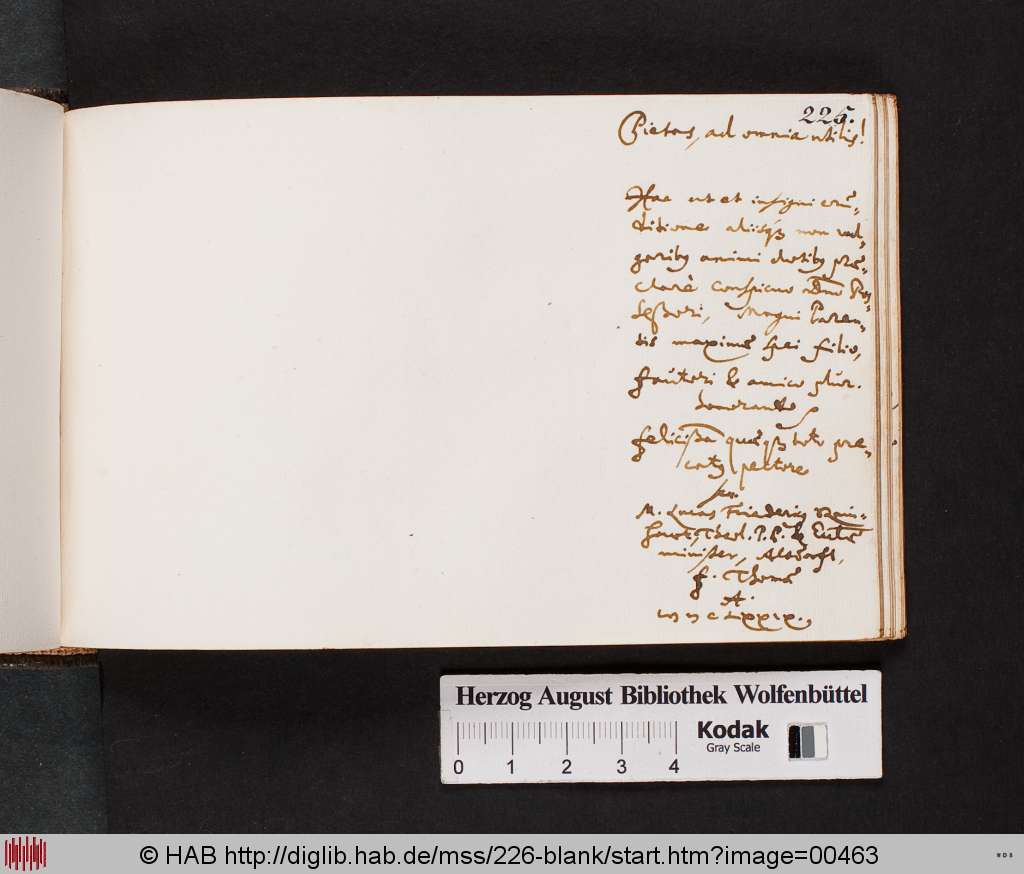 225.
Pietas, ad omnia utilis!
Hac ut et insigni eru-
ditione aliisq; non vul-
garibus animi dotibus præ-
clarè conspicuo Dno Pos-
sessori, Magni Paren-
tis maximæ spei filio,
fautori & amico plur.
honorando
felicissa quæq; toto pre-
catus pectore
scr.
M. Lucas Friedericus Rein-
hart, Theol. P. P. & Eccles
minister, Altdorfi,
f. Thomæ
A.
MDCLXXIX.
Herzog August Bibliothek Wolfenbüttel
Kodak
Gray Scale
0 1 2 3 4
© HAB http://diglib.hab.de/mss/226-blank/start.htm?image=00463